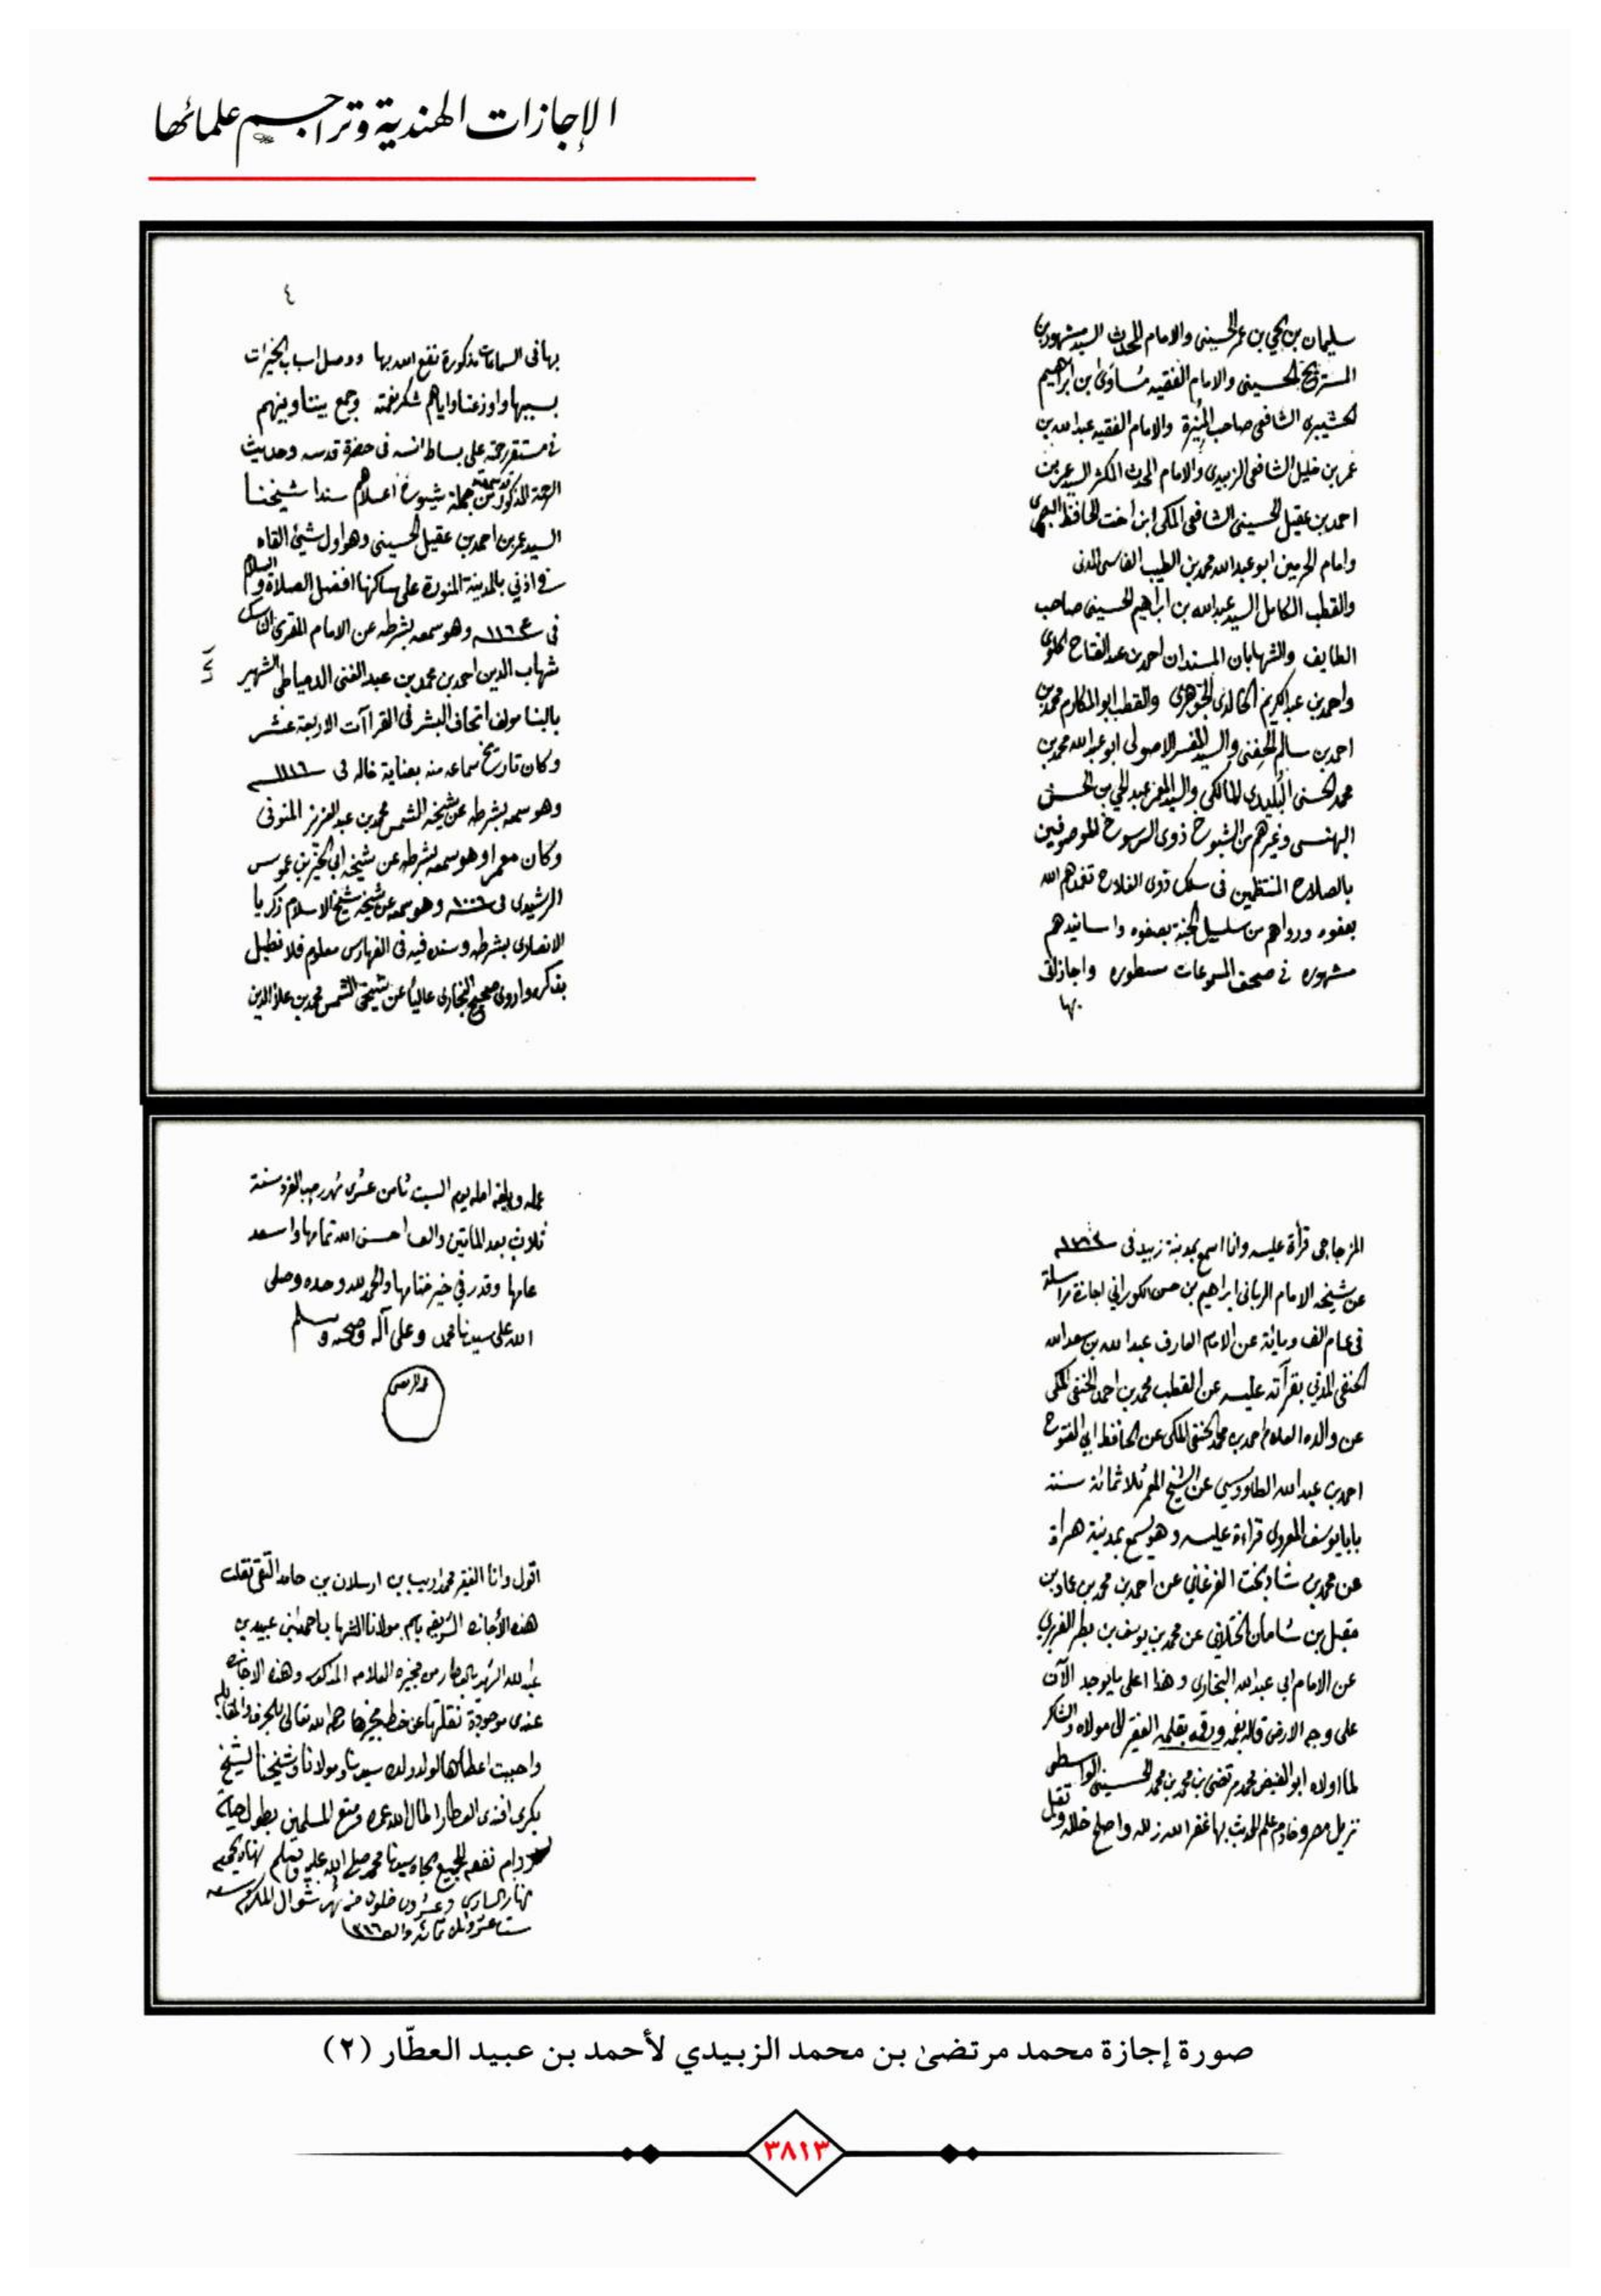 الإجازات الهندية وتراجم علمائها
سليمان بن يحيى بن عمر الحسيني والامام المحدث السيد مشهور بن
المستريح الحسيني والامام الفقيه مساوى ابن ابراهيم
الحشيبرى الشافعي صاحب المنيرة والامام الفقيه عبد الله بن
عمر بن خليل الشافعي الزبيدى والامام المحدث المكثر السيد عمر بن
احمد بن عقيل الحسيني الشافعي المكي ابن اخت الحافظ البصرى
وامام الحرمين ابو عبد الله محمد بن الطيب الفاسى المدنى
والقطب الكامل السيد عبد الله بن ابراهيم الحسيني صاحب
الطايف والشهابان المسندان احمد بن عبد الفتاح الملوى
واحمد بن عبد الكريم الخالدى الجوهرى والقطب ابو المكارم محمد بن
احمد بن سالم الحفنى والسيد المفسر الاصولى ابو عبد الله محمد بن
محمد الحسنى البليدى المالكي والسيد المعمر عبد الحي بن الحسن
البهنسى وغيرهم من الشيوخ ذوى الرسوخ الموصوفين
بالصلاح المنتظمين فى سلك ذوى الفلاح تغمدهم الله
بعفوه ورواهم من سلسبيل الجنة بصفوه واسانيدهم
مشهوره فى صحف المسموعات مسطوره واجازاتى
بها
٤
بها فى السماعات مذكورة نفع الله بها ووصل اسباب الخيرات
بسببها واوزعنا واياهم شكر نعمته وجمع بيننا وبينهم
فى مستقر رحمته على بساط انسه فى حضرة قدسه وحديث
الرحمة المذكور قد سمعته من جملة شيوخ اعلاهم سندا شيخنا
السيد عمر بن احمد بن عقيل الحسيني وهو اول شئ القاه
فى اذني بالمدينة المنورة على ساكنها افضل الصلاة والسلام
فى ١١٦٤ وهو سمعه بشرطه عن الامام المقرى الناسك
شهاب الدين احمد بن محمد بن عبد الغنى الدمياطي الشهير
بالبنا مولف اتحاف البشر فى القراآت الاربعة عشر
وكان تاريخ سماعه منه بعناية خاله فى ١١١٦
وهو سمعه بشرطه عن شيخه الشمس محمد بن عبد العزيز المنوفى
وكان معمرا وهو سمعه بشرطه عن شيخه ابى الخير بن عموس
الرشيدى فى ١٠٠٦ وهو سمعه عن شيخه شيخ الاسلام زكريا
الانصارى بشرطه وسنده فيه فى الفهارس معلوم فلا نطيل
بذكره واروى صحيح البخارى عاليا عن شيخي الشمس محمد بن علاء الدين
المزجاجى قرأة عليه وانا اسمع بمدينة زبيد فى
عن شيخه الامام الربانى ابراهيم بن حسن الكورانى اجازة مراسلة
فى عام الف ومائة عن الامام العارف عبد الله بن سعد الله
الحنفى المدني بقرآته عليه عن القطب محمد بن احمد الحنفى المكى
عن والده العلامة احمد بن محمد الحنفى المكى عن الحافظ ابي الفتوح
احمد بن عبد الله الطاووسي عن الشيخ المعمر ثلاثمائة سنة
بابا يوسف الهروى قراءة عليه وهو يسمع بمدينة هراة
عن محمد بن شاد بخت الفرغاني عن احمد بن محمد بن عماد بن
مقبل بن شاهان الختلاني عن محمد بن يوسف بن مطر الفربرى
عن الامام ابي عبد الله البخارى وهذا اعلى ما يوجد الآن
على وجه الارض قاله بفمه ورقمه بقلمه الفقير الى مولاه والشاكر
لما اولاه ابو الفيض محمد مرتضى بن محمد بن محمد الحسيني الواسطى
نزيل مصر وخادم علم الحديث بها غفر الله زلله واصلح خلله وتقبل
عمله وبلغه امله يوم السبت ثامن عشرى شهر رجب الفرد سنة
ثلاث بعد المأتين والف احسن الله تمامها واسعد
عامها وقدر في خير ختامها والحمد لله وحده وصلى
الله على سيدنا محمد وعلى آله وصحبه وسلم
محمد مرتضى
اقول وانا الفقير محمد اديب بن ارسلان بن حامد التقى نقلت
هذه الأجازة الشريفة باسم مولانا الشهاب احمد بن عبيد بن
عبد الله الشهير بالعطار من مجيزه العلامة المذكور وهذه الاجازة
عندى موجودة نقلتها عن خط مجيزها رحمه الله تعالى بالحرف
واحببت اعطائها لولد ولده سيدنا ومولانا وشيخنا الشيخ
بكرى افندى العطار اطال الله عمره ومتع المسلمين بطول حياته
ودام نفعه للجميع بجاه سيدنا محمد صلى الله عليه وسلم
نهار السادس وعشرون خلون من شهر شوال المكرم سنة
ستة عشر وثلاثمائة والف ١٣١٦
صورة إجازة محمد مرتضىٰ بن محمد الزبيدي لأحمد بن عبيد العطّار (٢)
٣٨١٣